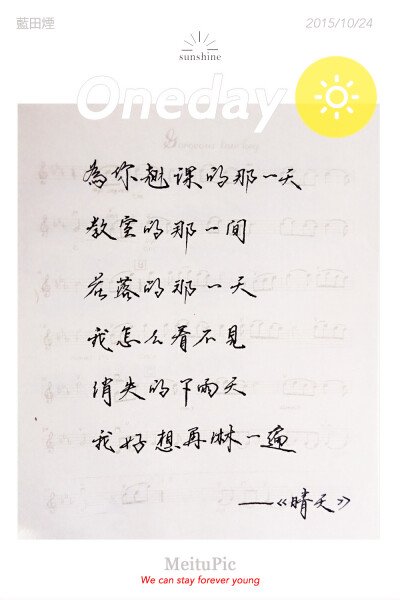 藍田煙
2015/10/24
sunshine
Oneday
為你翹课的那一天
教室的那一间
花落的那一天
我怎么看不見
消失的下雨天
我好想再淋一遍
——《晴天》
MeituPic
We can stay forever young